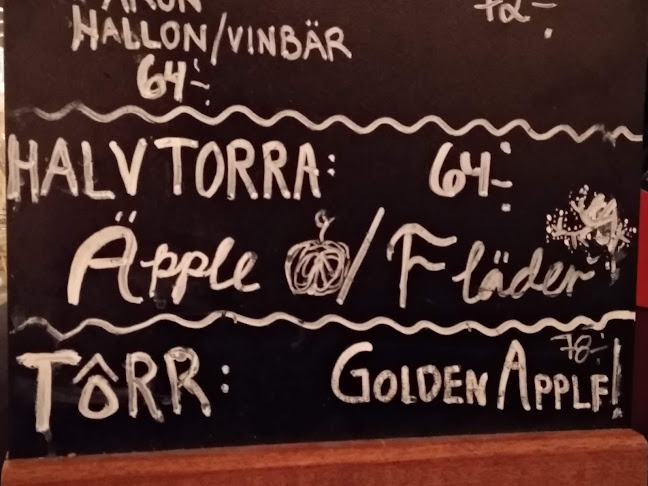 72:-
HALLON/VINBÄR
64:-
HALVTORRA: 64:-
Äpple / Fläder
78:-
TÔRR: GOLDEN APPLE!